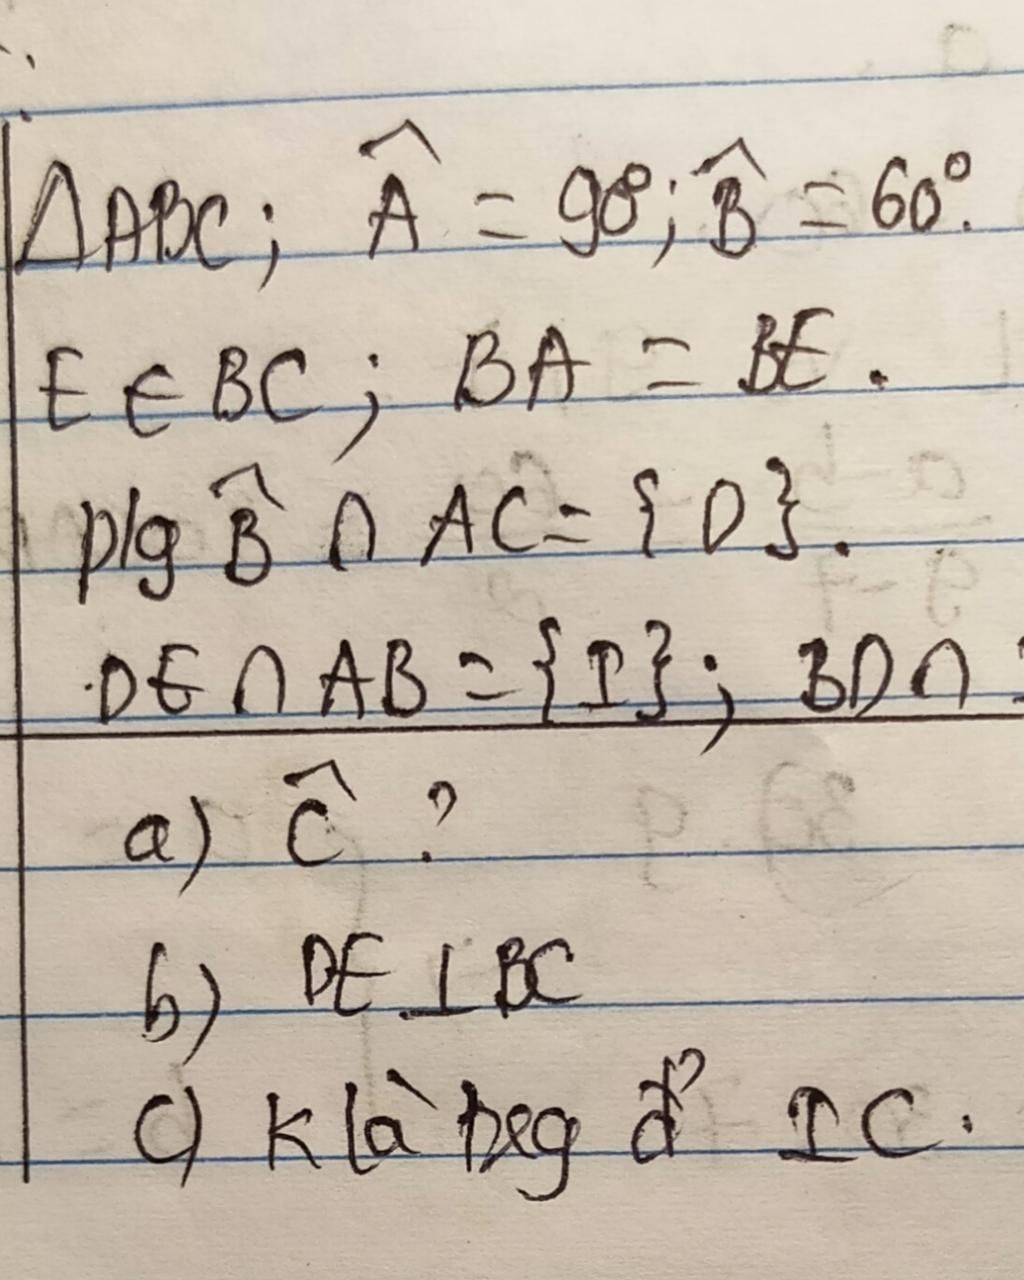 ΔABC; Â = 90°; B̂ = 60°.
E ∈ BC; BA = BE.
p/g B̂ ∩ AC = {D}.
DE ∩ AB = {I}; BD ∩
a) Ĉ ?
b) DE ⊥ BC
c) K là IC.